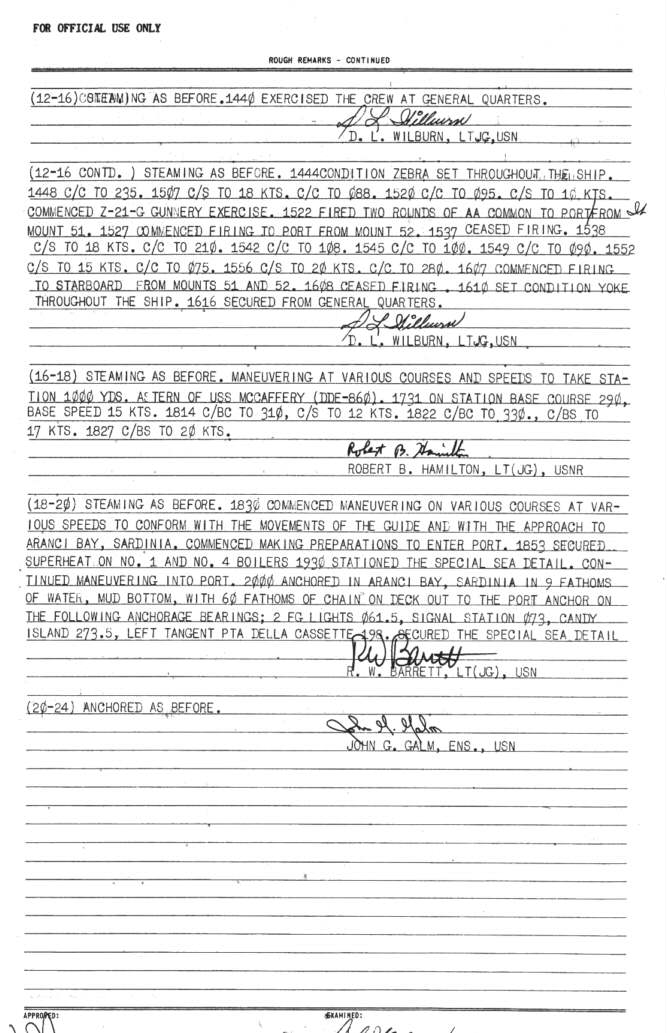 FOR OFFICIAL USE ONLY
ROUGH REMARKS - CONTINUED
(12-16) STEAMING AS BEFORE.144Ø EXERCISED THE CREW AT GENERAL QUARTERS.
D L Wilburn
D. L. WILBURN, LTJG,USN
(12-16 CONTD. ) STEAMING AS BEFORE. 1444CONDITION ZEBRA SET THROUGHOUT THE SHIP.
1448 C/C TO 235. 15Ø7 C/S TO 18 KTS. C/C TO Ø88. 152Ø C/C TO Ø95. C/S TO 1Ø KTS.
COMMENCED Z-21-G GUNNERY EXERCISE. 1522 FIRED TWO ROUNDS OF AA COMMON TO PORT/FROM
MOUNT 51. 1527 COMMENCED FIRING TO PORT FROM MOUNT 52. 1537 CEASED FIRING. 1538
C/S TO 18 KTS. C/C TO 21Ø. 1542 C/C TO 1Ø8. 1545 C/C TO 1ØØ. 1549 C/C TO Ø9Ø. 1552
C/S TO 15 KTS. C/C TO Ø75. 1556 C/S TO 2Ø KTS. C/C TO 28Ø. 16Ø7 COMMENCED FIRING
TO STARBOARD FROM MOUNTS 51 AND 52. 16Ø8 CEASED FIRING . 161Ø SET CONDITION YOKE
THROUGHOUT THE SHIP. 1616 SECURED FROM GENERAL QUARTERS.
D L Wilburn
D. L. WILBURN, LTJG,USN
(16-18) STEAMING AS BEFORE. MANEUVERING AT VARIOUS COURSES AND SPEEDS TO TAKE STA-
TION 1ØØØ YDS. ASTERN OF USS MCCAFFERY (DDE-86Ø). 1731 ON STATION BASE COURSE 29Ø,
BASE SPEED 15 KTS. 1814 C/BC TO 31Ø, C/S TO 12 KTS. 1822 C/BC TO 33Ø., C/BS TO
17 KTS. 1827 C/BS TO 2Ø KTS.
Robert B. Hamilton
ROBERT B. HAMILTON, LT(JG), USNR
(18-2Ø) STEAMING AS BEFORE. 183Ø COMMENCED MANEUVERING ON VARIOUS COURSES AT VAR-
IOUS SPEEDS TO CONFORM WITH THE MOVEMENTS OF THE GUIDE AND WITH THE APPROACH TO
ARANCI BAY, SARDINIA. COMMENCED MAKING PREPARATIONS TO ENTER PORT. 1853 SECURED
SUPERHEAT ON NO. 1 AND NO. 4 BOILERS 193Ø STATIONED THE SPECIAL SEA DETAIL. CON-
TINUED MANEUVERING INTO PORT. 2ØØØ ANCHORED IN ARANCI BAY, SARDINIA IN 9 FATHOMS
OF WATER, MUD BOTTOM, WITH 6Ø FATHOMS OF CHAIN ON DECK OUT TO THE PORT ANCHOR ON
THE FOLLOWING ANCHORAGE BEARINGS; 2 FG LIGHTS Ø61.5, SIGNAL STATION Ø73, CANDY
ISLAND 273.5, LEFT TANGENT PTA DELLA CASSETTE 198. SECURED THE SPECIAL SEA DETAIL
RW Barrett
R. W. BARRETT, LT(JG), USN
(2Ø-24) ANCHORED AS BEFORE.
John G. Galm
JOHN G. GALM, ENS., USN
APPROVED: EXAMINED: